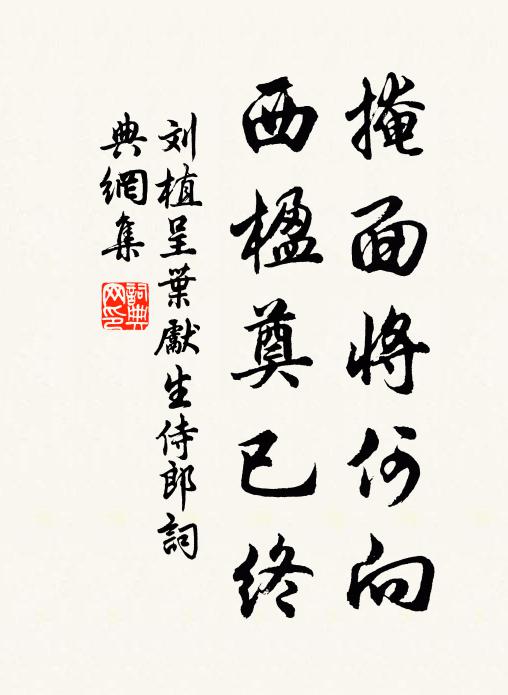 掩面將何向
西楹奠已終
刘植呈葉獻生侍郎詞
典網集
詞典網印